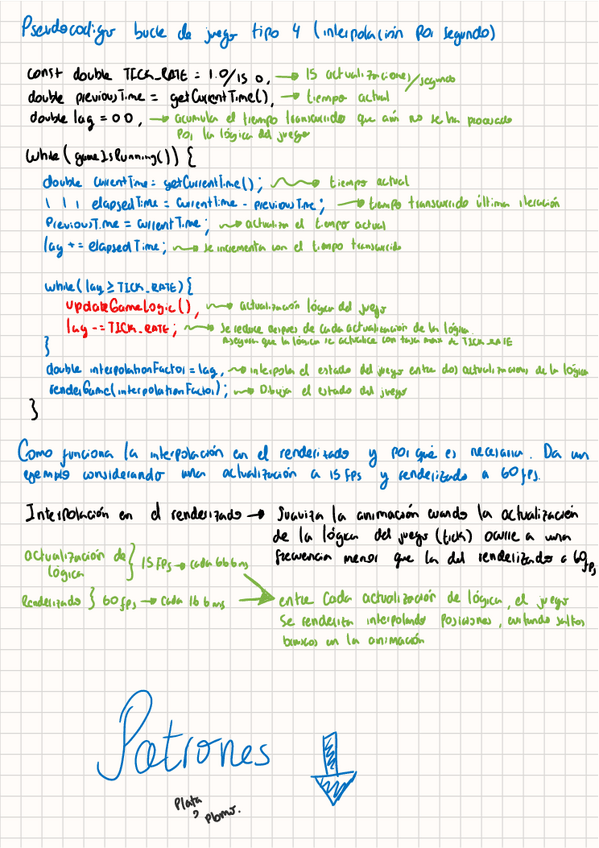 Pseudocodigo bucle de juego tipo 4 (interpolación por segundo)
const double TICK_RATE = 1.0/15.0; → 15 actualizaciones/segundo
double previousTime = getCurrentTime(); → tiempo actual
double lag = 0.0; → acumula el tiempo transcurrido que aún no se ha procesado
por la lógica del juego
while (gameIsRunning()) {
double currentTime = getCurrentTime(); → tiempo actual
| | | elapsedTime = currentTime - previousTime; → tiempo transcurrido última iteración
previousTime = currentTime; → actualiza el tiempo actual
lag += elapsedTime; → se incrementa con el tiempo transcurrido
while (lag ≥ TICK_RATE) {
updateGameLogic(); → actualización lógica del juego
lag -= TICK_RATE; → se reduce después de cada actualización de la lógica.
Asegura que la lógica se actualice con tasa max de TICK_RATE
}
double interpolationFactor = lag; → interpola el estado del juego entre dos actualizaciones de la lógica
renderGame(interpolationFactor); → Dibuja el estado del juego
}
Como funciona la interpolación en el renderizado y por qué es necesaria. Da un
ejemplo considerando una actualización a 15 fps y renderizado a 60 fps.
Interpolación en el renderizado → Suaviza la animación cuando la actualización
de la lógica del juego (tick) ocurre a una
frecuencia menor que la del renderizado a 60fps
actualización de
lógica } 15 FPS → cada 66 6 ms
Renderizado } 60 fps → cada 16 6 ms
entre cada actualización de lógica, el juego
se renderiza interpolando posiciones, evitando saltos
bruscos en la animación
Patrones
Plata
o
plomo.